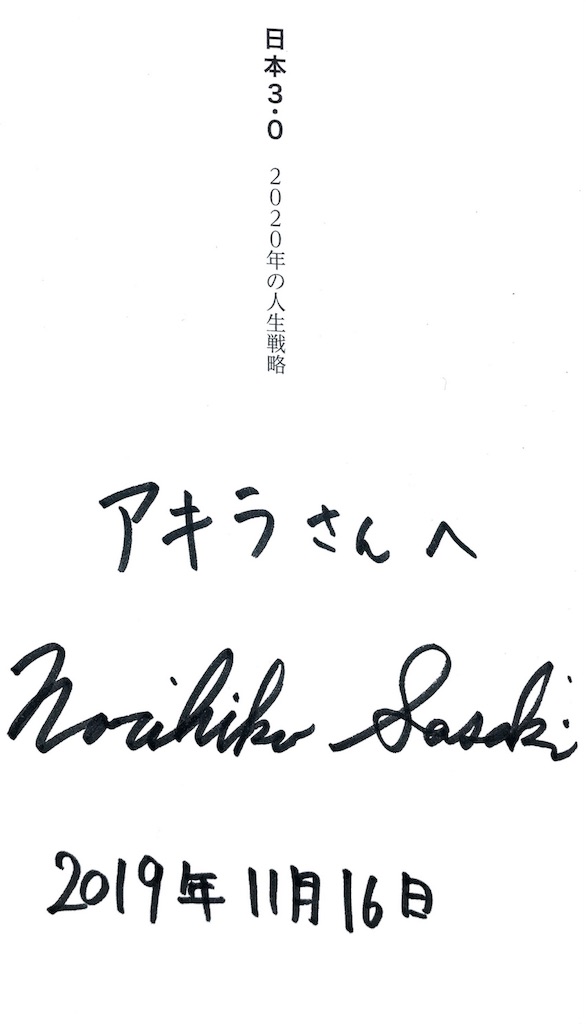 日本3.0 2020年の人生戦略
アキラさんへ
Norihiko Sasaki
2019年11月16日